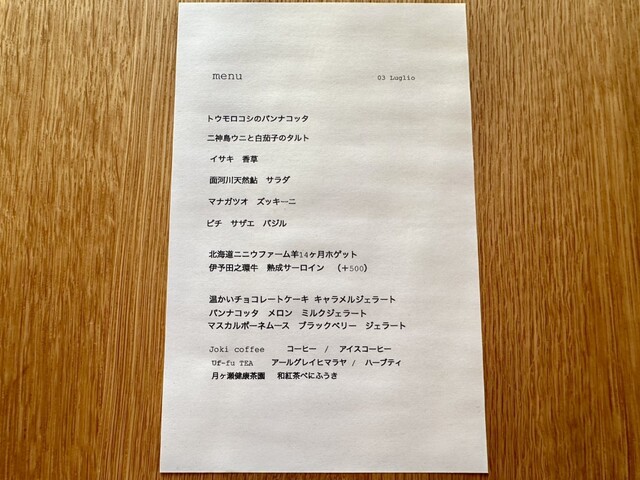 menu 03 Luglio
トウモロコシのパンナコッタ
二神島ウニと白茄子のタルト
イサキ 香草
面河川天然鮎 サラダ
マナガツオ ズッキーニ
ピチ サザエ バジル
北海道ニニウファーム羊14ヶ月ホゲット
伊予田之環牛 熟成サーロイン (+500)
温かいチョコレートケーキ キャラメルジェラート
パンナコッタ メロン ミルクジェラート
マスカルポーネムース ブラックベリー ジェラート
Joki coffee コーヒー / アイスコーヒー
Uf-fu TEA アールグレイヒマラヤ / ハーブティ
月ヶ瀬健康茶園 和紅茶べにふうき